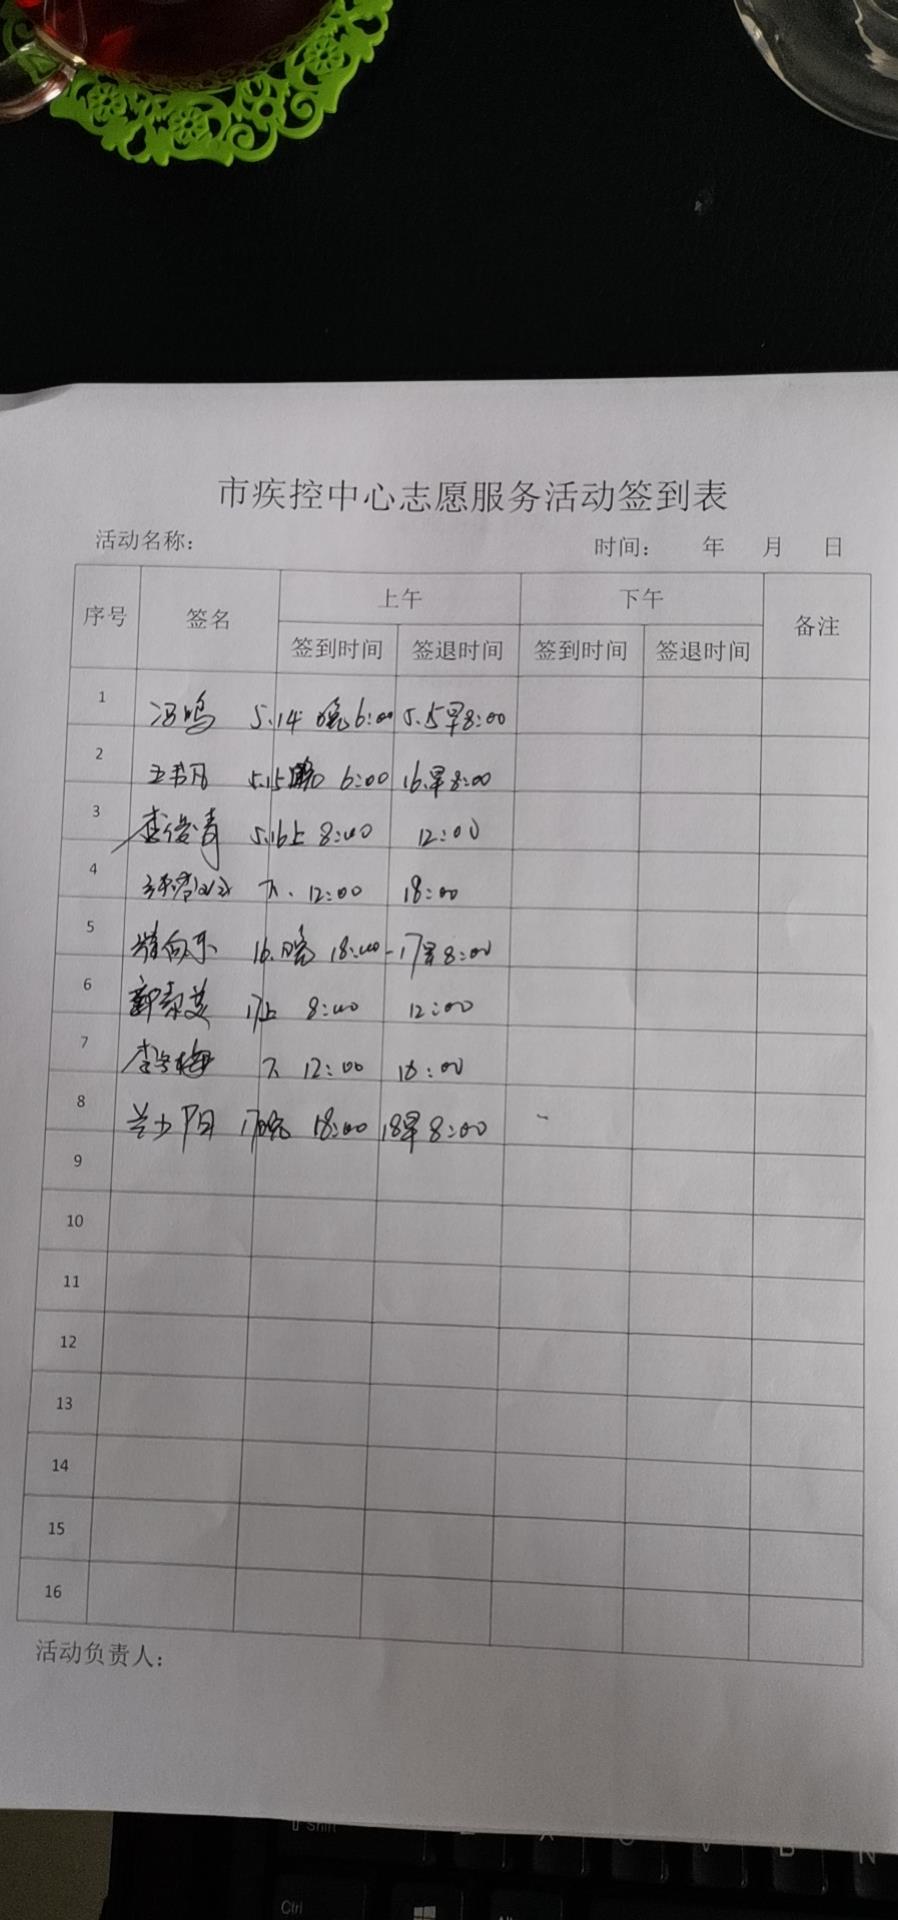 市疾控中心志愿服务活动签到表
活动名称： 时间： 年 月 日
序号 签名 上午 下午 备注
签到时间 签退时间 签到时间 签退时间
1 冯鸣 5.14 晚6:00 5.15早8:00
2 王书凡 5.15晚 6:00 16.早8:00
3 李俊青 5.16上 8:00 12:00
4 下. 12:00 18:00
5 16.晚 18:00-17早8:00
6 17上 8:00 12:00
7 下 12:00 18:00
8 17晚 18:00 18早8:00
9
10
11
12
13
14
15
16
活动负责人：
Shift
Ctrl